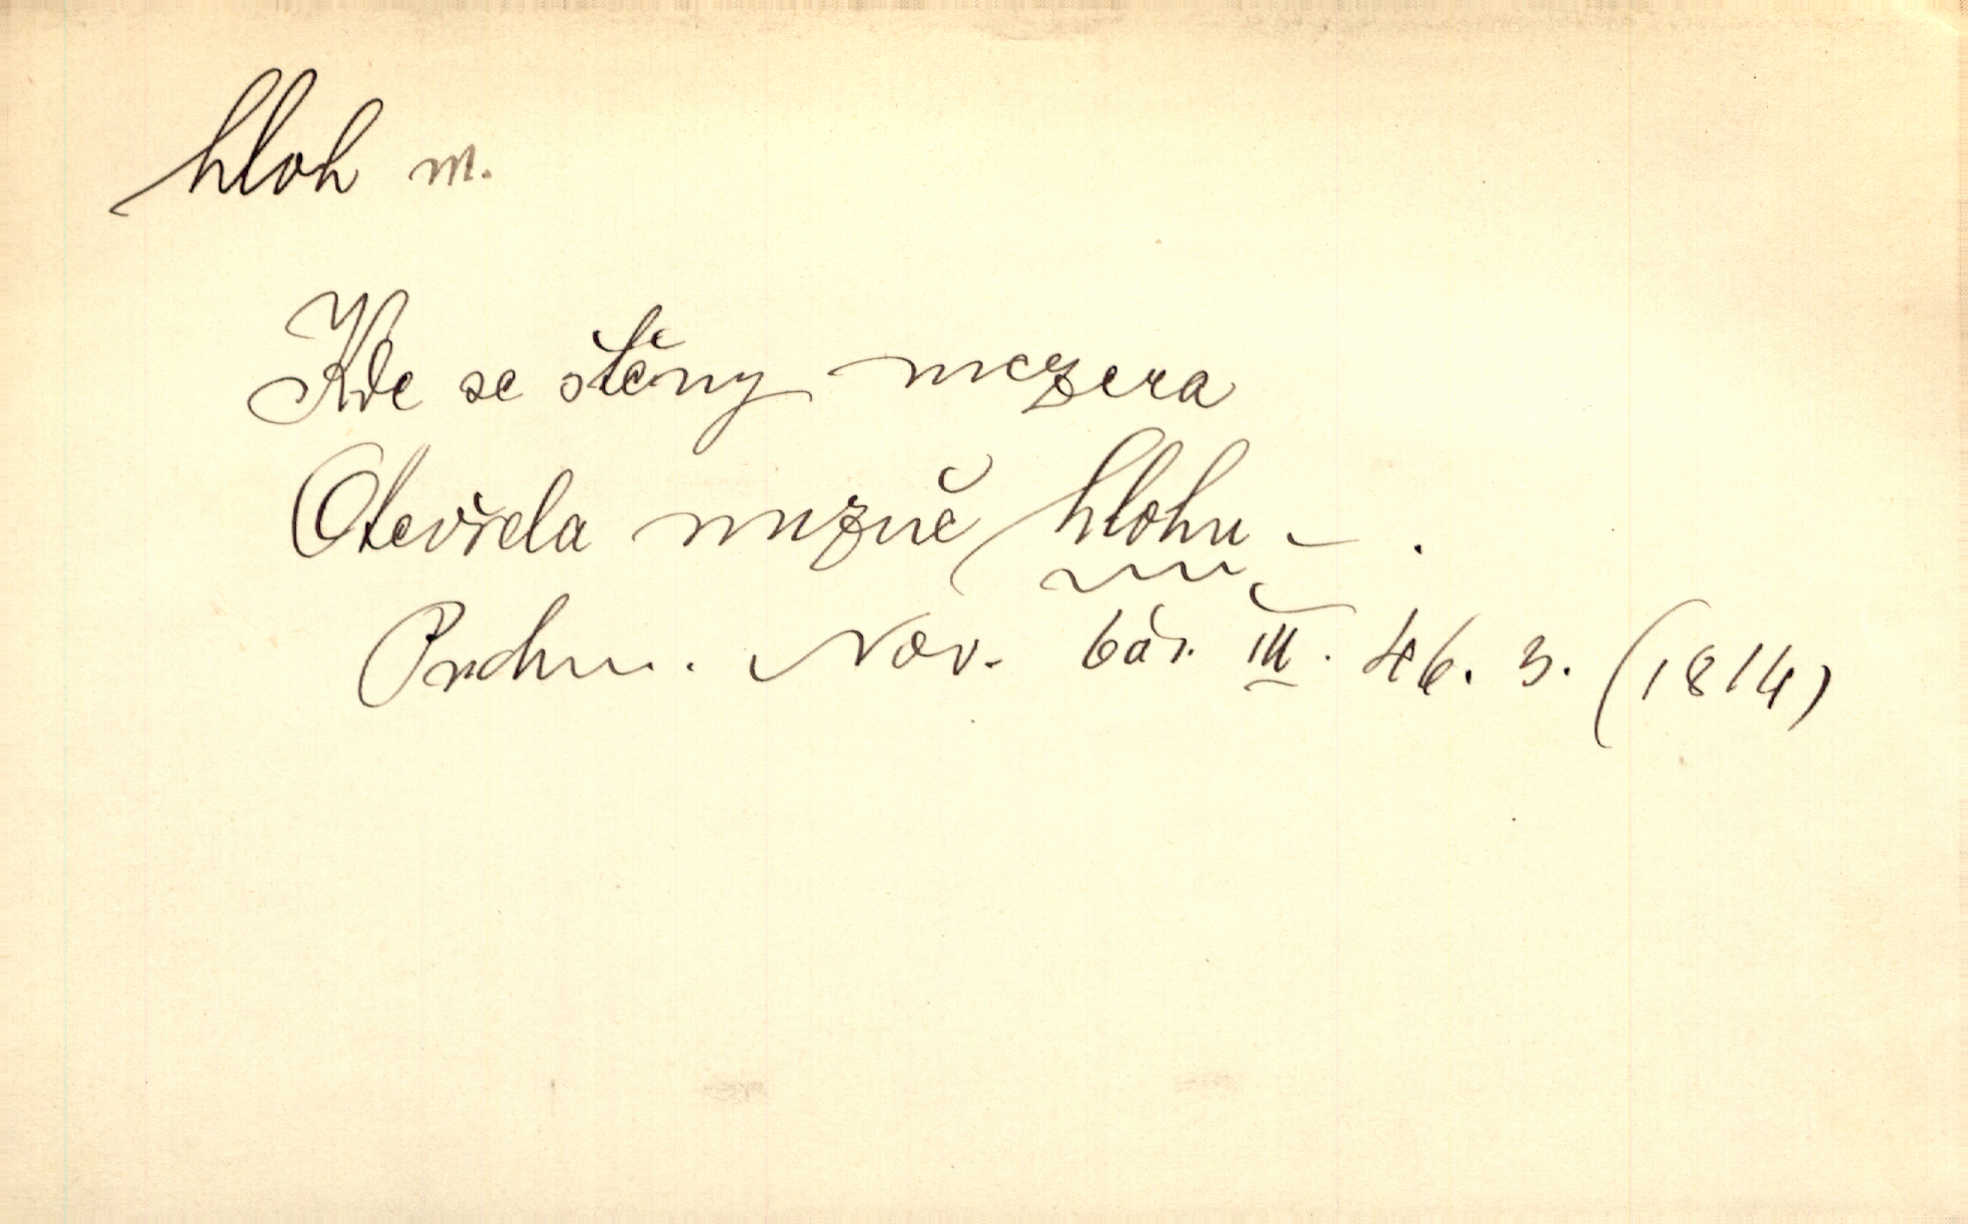 hloh m.
Kde se stěny mezera
Otevřela nuzně hlohu – .
Puchm. Nov. bás. III. 46. 3. (1814)